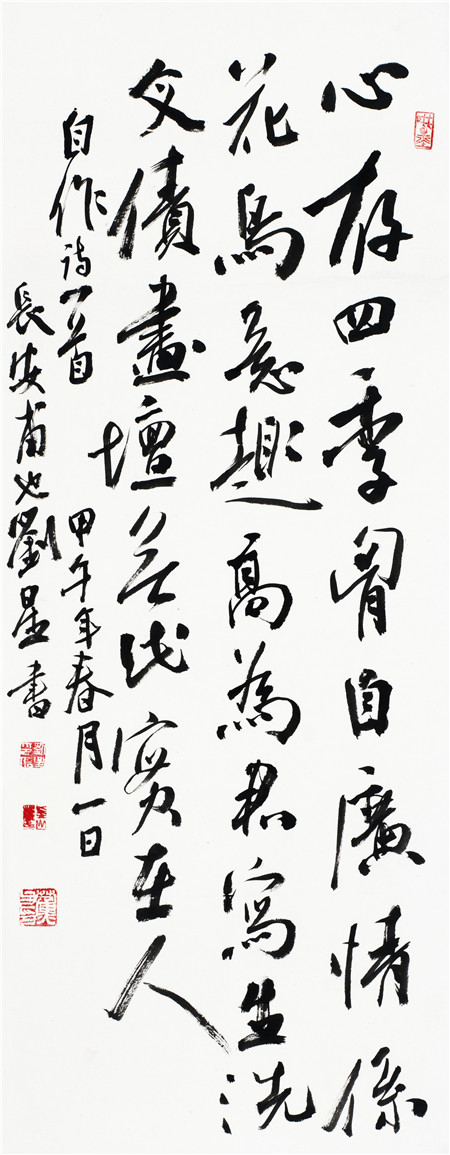 心存四季胷自廣情係
花鳥意趣高為君寫生洗
文債畫壇在人
自作詩一首
甲午年春月一日
長安劉星書